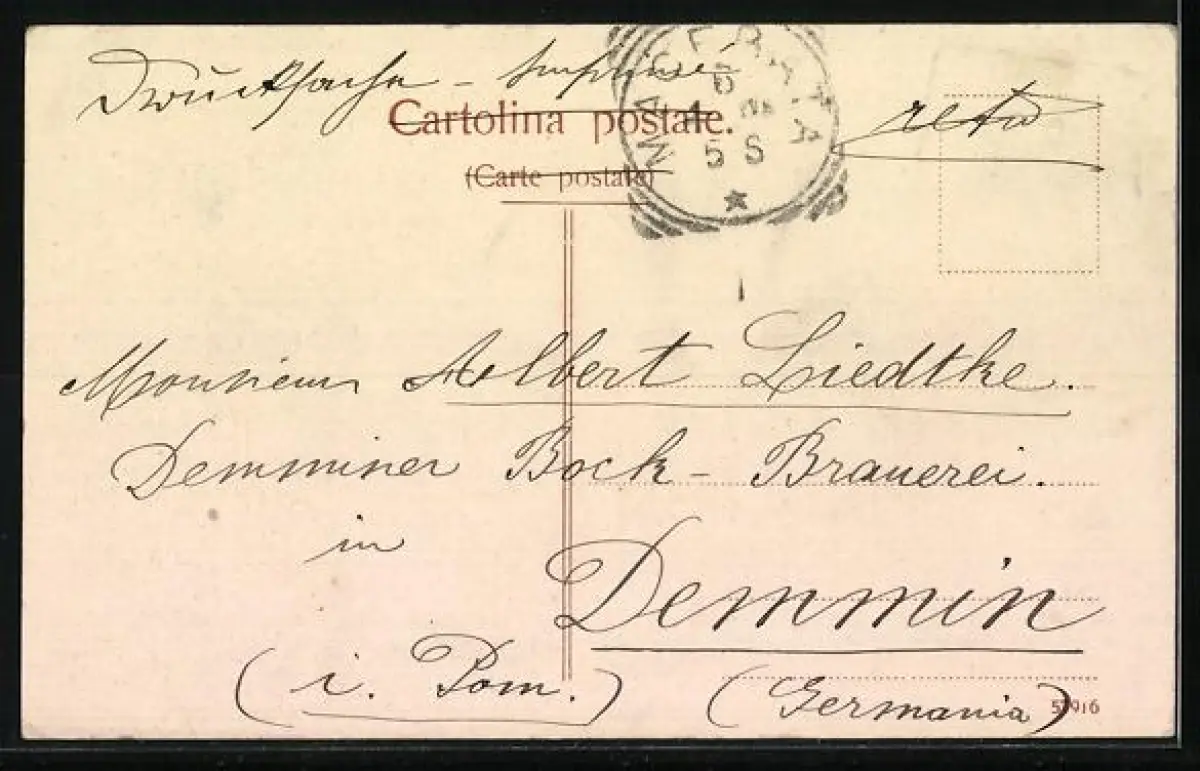 Drucksache – Imprimé retro
Cartolina postale.
(Carte postale)
Monsieur Albert Liedtke.
Demminer Bock-Brauerei.
in
Demmin
(i. Pom.) (Germania)